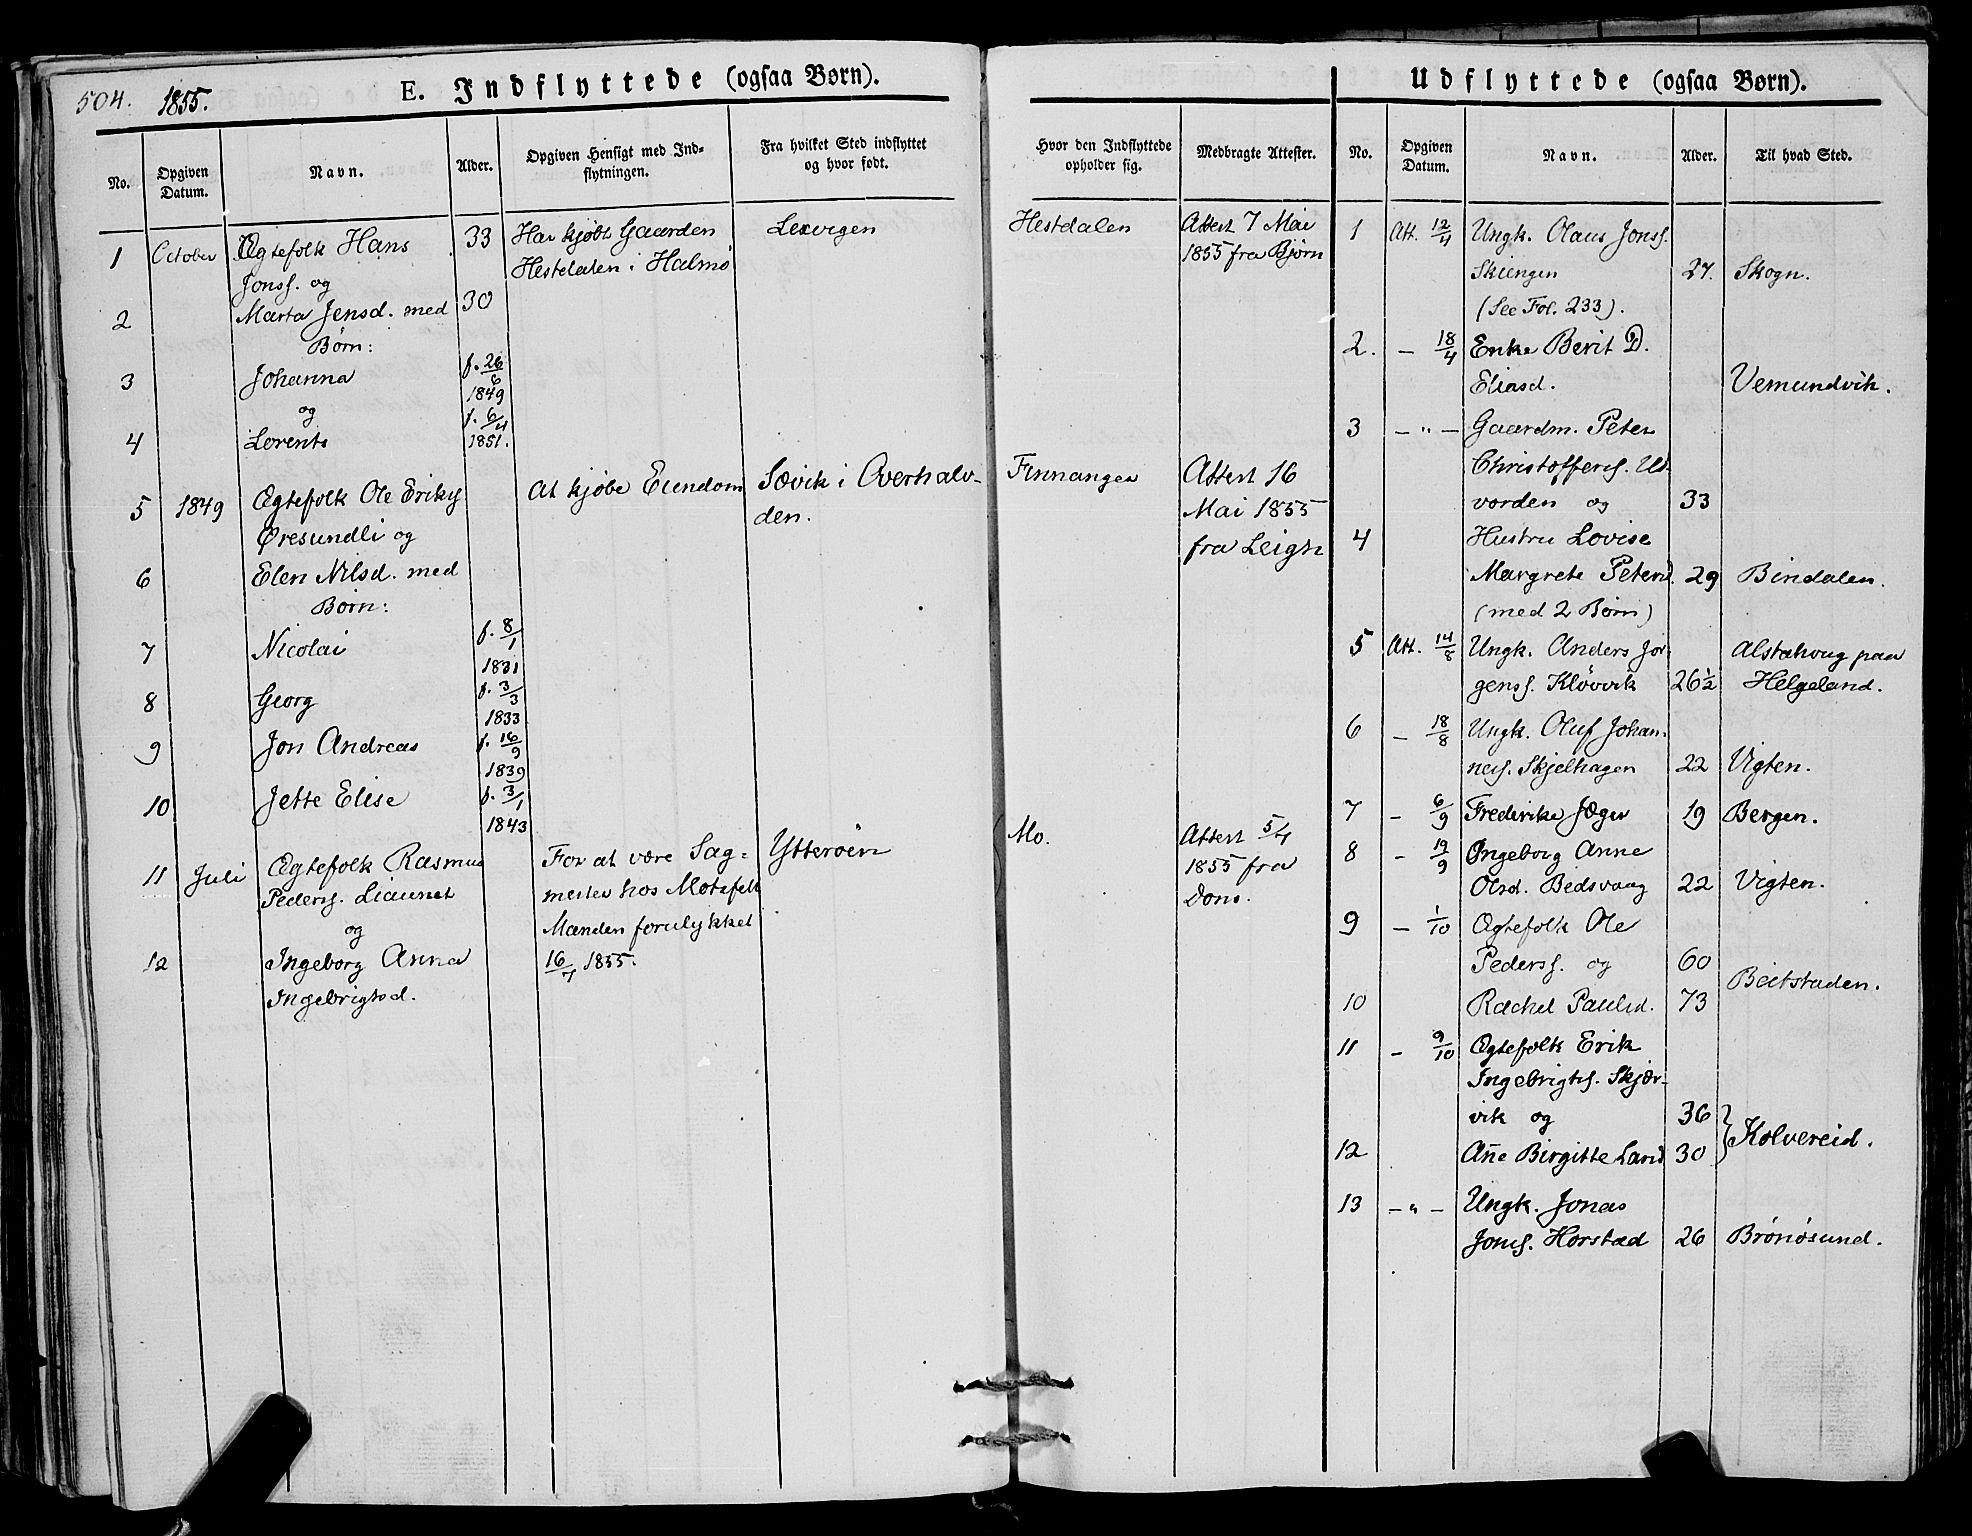 504. 1855.
E. Indflyttede (ogsaa Børn).
No.
Opgiven Datum.
Navn.
Alder.
Opgiven Hensigt med Ind-
flytningen.
Fra hvilket Sted indflyttet
og hvor født.
Hvor den Indflyttede
opholder sig.
Medbragte Attester.
1 October Ægtefolk Hans 33 Har kjøbt Gaarden Lexvigen Hestdalen Attest 7 Mai
Jonss. og Hestdalen i Halmø 1855 fra Bjørn
2 Marta Jensd. med 30
Børn:
3 Johanna f. 26/6
1849
og
4 Lorents f. 6/4
1851.
5 1849 Ægtefolk Ole Eriks. At kjøbe Eiendom Sævik i Overhalv- Finnangen Attest 16
Øresundli og den. Mai 1855
6 Elen Nilsd. med fra Leigh
Børn:
7 Nicolai f. 8/1
1831
8 Georg f. 3/3
1833
9 Jon Andreas f. 16/9
1839
10 Jette Elise f. 3/1
1843
11 Juli Ægtefolk Rasmus For at være Sag- Ytterøen Mo. Attest 5/4
Pederss. Liaunet mester hos Motzfelt 1855 fra
og Manden forulykket Dons.
12 Ingeborg Anna 16/7 1855.
Ingebrigtsd.
Udflyttede (ogsaa Børn).
No.
Opgiven Datum.
Navn.
Alder.
Til hvad Sted.
1 Att. 12/4 Ungk. Olaus Jonss.
Skiengen 27. Skogn.
(See Fol. 233).
2. — 18/4 Enke Berit D.
Eliasd. Vemundvik.
3 — " — Gaardm. Peter
Christoffers. Ut-
vorden og 33
4 Hustru Lovise
Margrete Petersd. 29 Bindalen.
(med 2 Børn)
5 Att. 14/8 Ungk. Anders Jør- Alstahoug paa
genss. Kløvvik 26½ Helgeland.
6 — 18/8 Ungk. Oluf Johan-
ness. Skjelhagen 22 Vigten.
7 — 6/9 Frederike Jæger 19 Bergen.
8 — 19/9 Ingeborg Anne
Olsd. Bedsvaag 22 Vigten.
9 — 1/10 Ægtefolk Ole
Pederss. og 60
Beitstaden.
10 Rachel Paulsd. 73
11 — 9/10 Ægtefolk Erik
Ingebrigts. Skjær-
vik og 36
Kolvereid.
12 Añe Birgitte Larsd 30
13 — " — Ungk. Jonas
Jons. Horstad 26 Brønøsund.